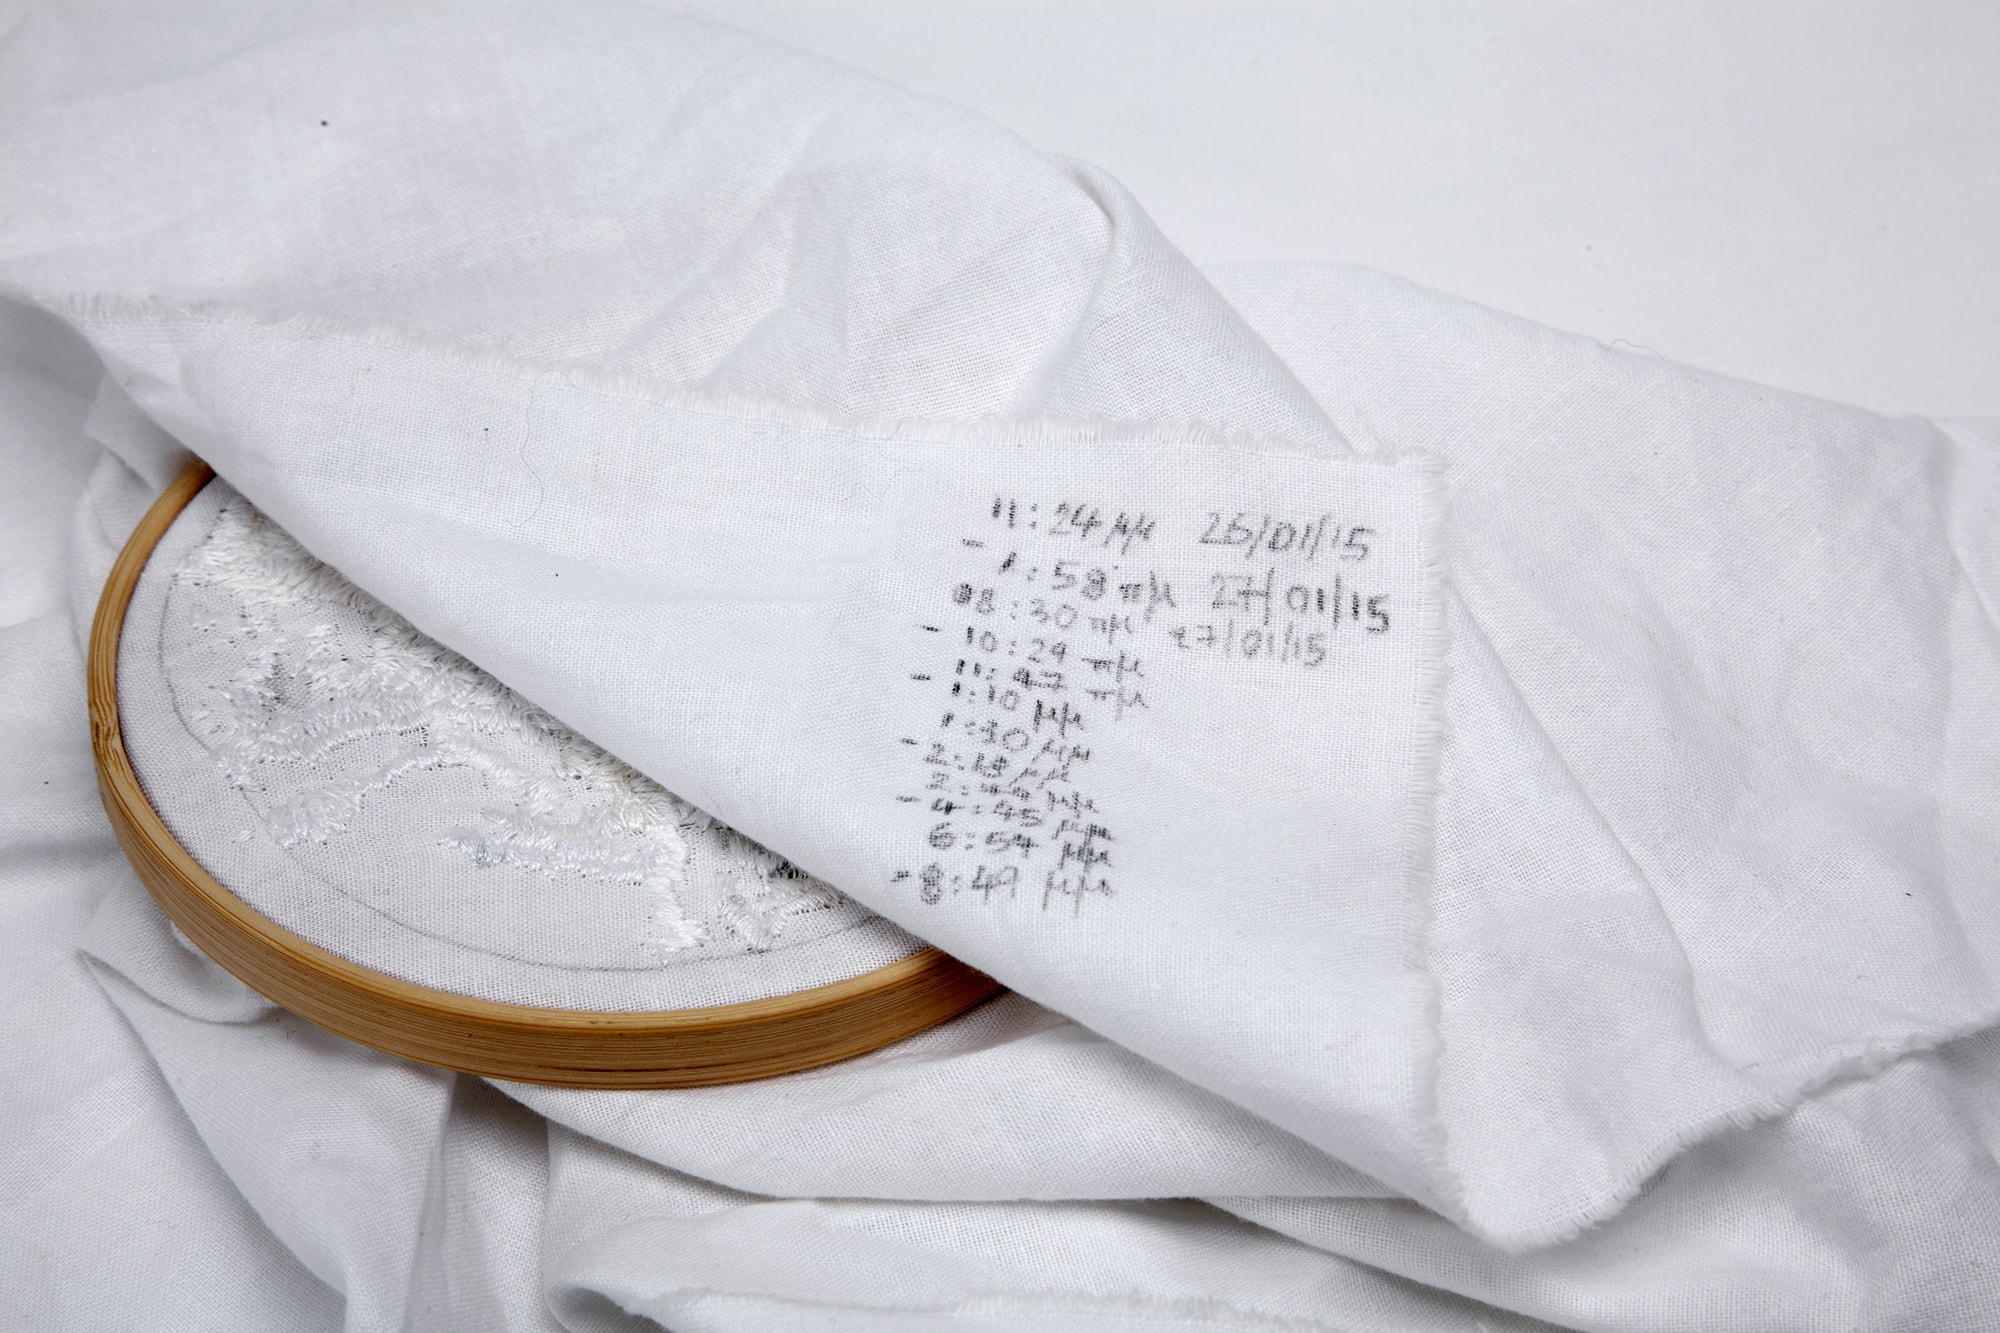 11:24 μμ 26/01/15
- 1:58 πμ 27/01/15
08:30 πμ 27/01/15
- 10:29 πμ
11:47 πμ
- 1:10 μμ
1:30 μμ
- 2:18 μμ
2:44 μμ
- 4:45 μμ
6:54 μμ
- 8:49 μμ